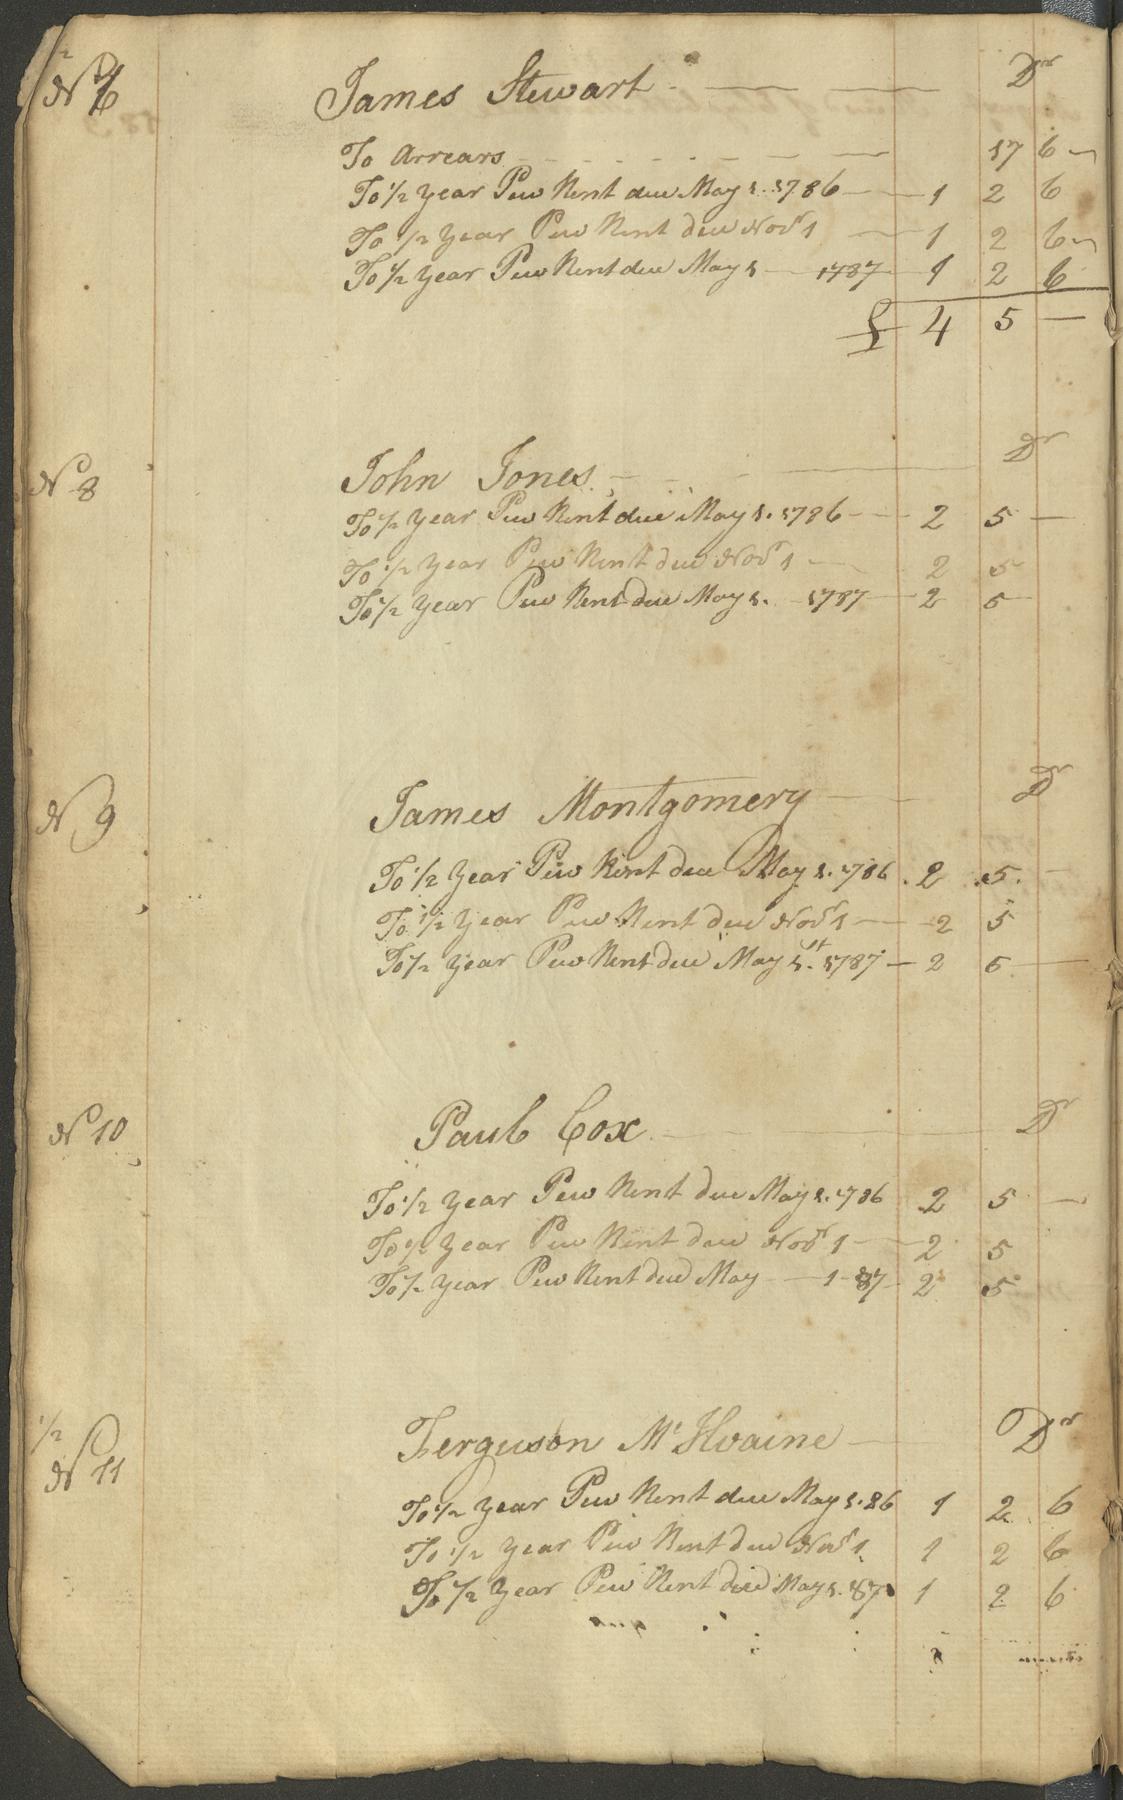 James Stewart Dr
To Arrears 17 6
To 1/2 Year Pew Rent due May 1. 1786 1 2 6
To 1/2 Year Pew Rent due Novr 1 1 2 6
To 1/2 Year Pew Rent due May 1 1787 1 2 6
£ 4 5 —
No 8 John Jones Dr
To 1/2 Year Pew Rent due May 1. 1786 2 5 —
To 1/2 Year Pew Rent due Novr 1 2 5
To 1/2 Year Pew Rent due May 1. 1787 2 5
No 9 James Montgomery Dr
To 1/2 Year Pew Rent due May 1. 1786 2 5
To 1/2 Year Pew Rent due Novr 1 2 5
To 1/2 Year Pew Rent due May 1st 1787 2 5 —
No 10 Paul Cox Dr
To 1/2 Year Pew Rent due May 1. 1786 2 5 —
To 1/2 Year Pew Rent due Novr 1 2 5
To 1/2 Year Pew Rent due May 1 87 2 5
1/2
No 11 Ferguson McIlvaine Dr
To 1/2 Year Pew Rent due May 1. 86 1 2 6
To 1/2 Year Pew Rent due Novr 1 1 2 6
To 1/2 Year Pew Rent due May 1. 87 1 2 6